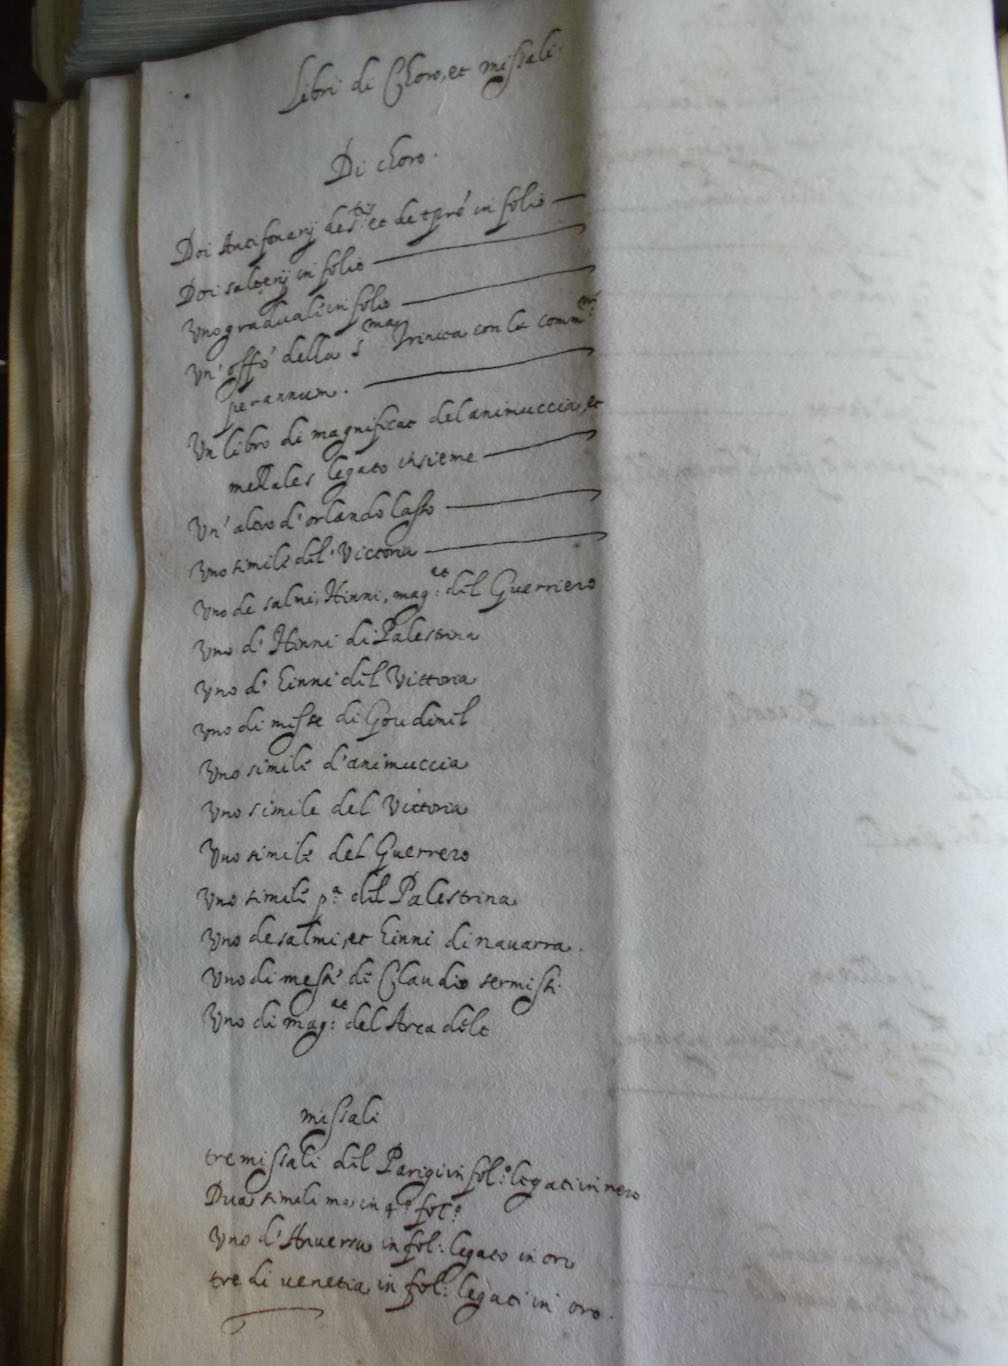 Libri di Choro, et missali.
Di choro.
Doi Antifonarij de s.ti et de tpré in folio
Doi salterij in folio
Uno graduali in folio
Un' offo' della s.ma Trinita con le comm.ni
per annum.
Un libro di magnificat del animuccia, et
morales legato insieme
Un' altro d' orlando lasso
Uno simile del Vittoria
Uno de salmi, Hinni, mag:at del Guerriero
Uno d' Hinni di Palestrina
Uno d' Hinni del Vittoria
Uno di misse di Goudimil
Uno simile d' animuccia
Uno simile del Vittoria
Uno simile del Guerrero
Uno simile p.a del Palestrina
Uno de salmi, et Hinni di navarra.
Uno di messe di Claudio sermisi.
Uno di mag:at del Arcadelt
missali
tre missali del Parigi in fol:o legati in nero
Dua simili in 4.o fol:o
Uno d' Anversa in fol: legato in oro
tre di venetia in fol: legati in oro.